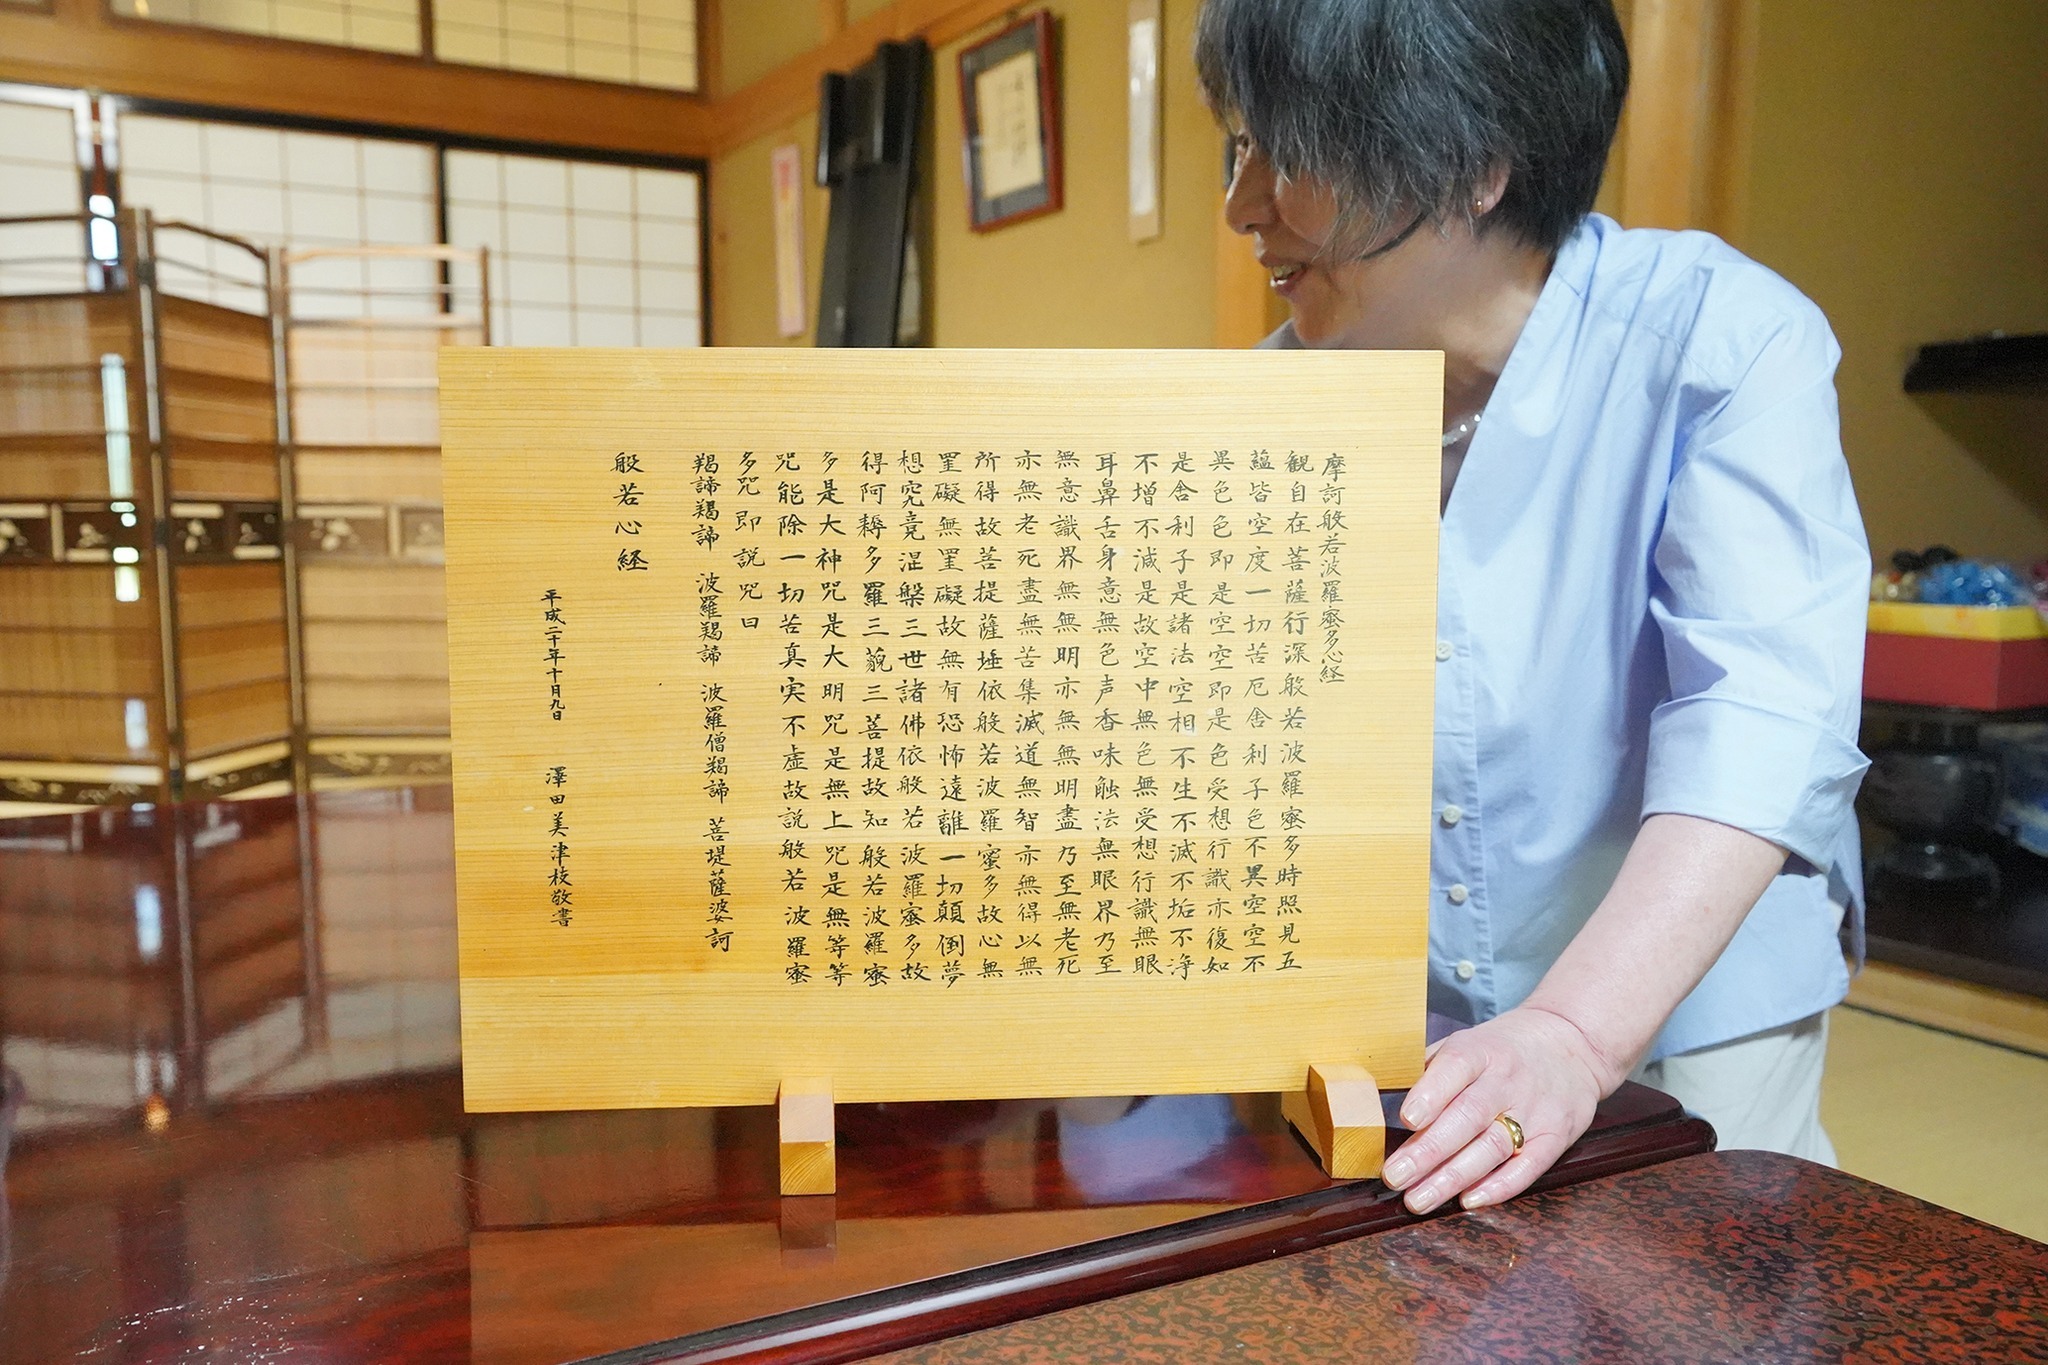 摩訶般若波羅蜜多心経
観自在菩薩行深般若波羅蜜多時照見五
蘊皆空度一切苦厄舎利子色不異空空不
異色色即是空空即是色受想行識亦復如
是舎利子是諸法空相不生不滅不垢不浄
不増不減是故空中無色無受想行識無眼
耳鼻舌身意無色声香味触法無眼界乃至
無意識界無無明亦無無明盡乃至無老死
亦無老死盡無苦集滅道無智亦無得以無
所得故菩提薩埵依般若波羅蜜多故心無
罣礙無罣礙故無有恐怖遠離一切顛倒夢
想究竟涅槃三世諸佛依般若波羅蜜多故
得阿耨多羅三藐三菩提故知般若波羅蜜
多是大神咒是大明咒是無上咒是無等等
咒能除一切苦真実不虚故説般若波羅蜜
多咒即説咒曰
羯諦羯諦 波羅羯諦 波羅僧羯諦 菩堤薩婆訶
般若心経
平成二十年十月九日 澤田美津枝敬書